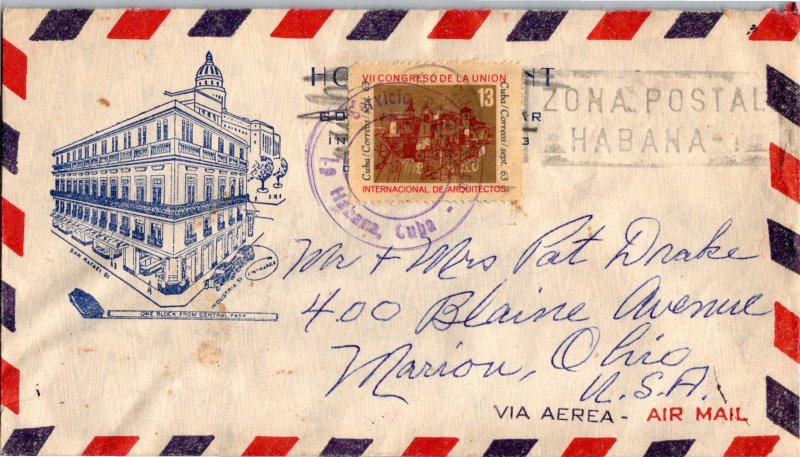 VII CONGRESO DE LA UNION
13
Cuba/Correos/sept. 63
Cuba/Correos/sept. 63
INTERNACIONAL DE ARQUITECTOS
La Habana, Cuba
ZONA POSTAL
HABANA
SAN RAFAEL ST
INDUSTRIA ST
ENTRANCE
ONE BLOCK FROM CENTRAL PARK
Mr + Mrs Pat Drake
400 Blaine Avenue
Marion, Ohio
U.S.A.
VIA AEREA - AIR MAIL